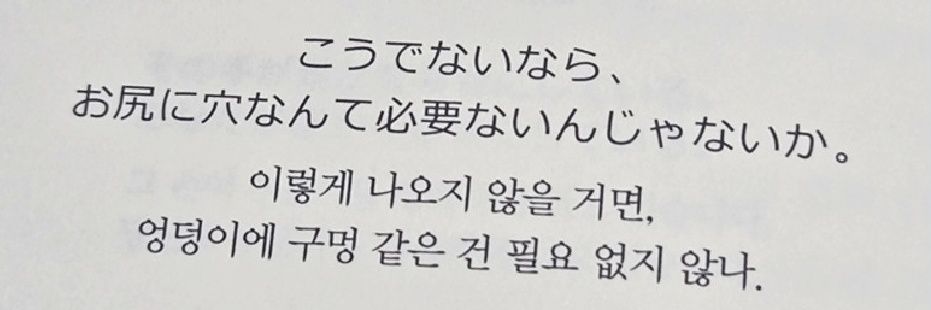 こうでないなら、
お尻に穴なんて必要ないんじゃないか。
이렇게 나오지 않을 거면,
엉덩이에 구멍 같은 건 필요 없지 않나.